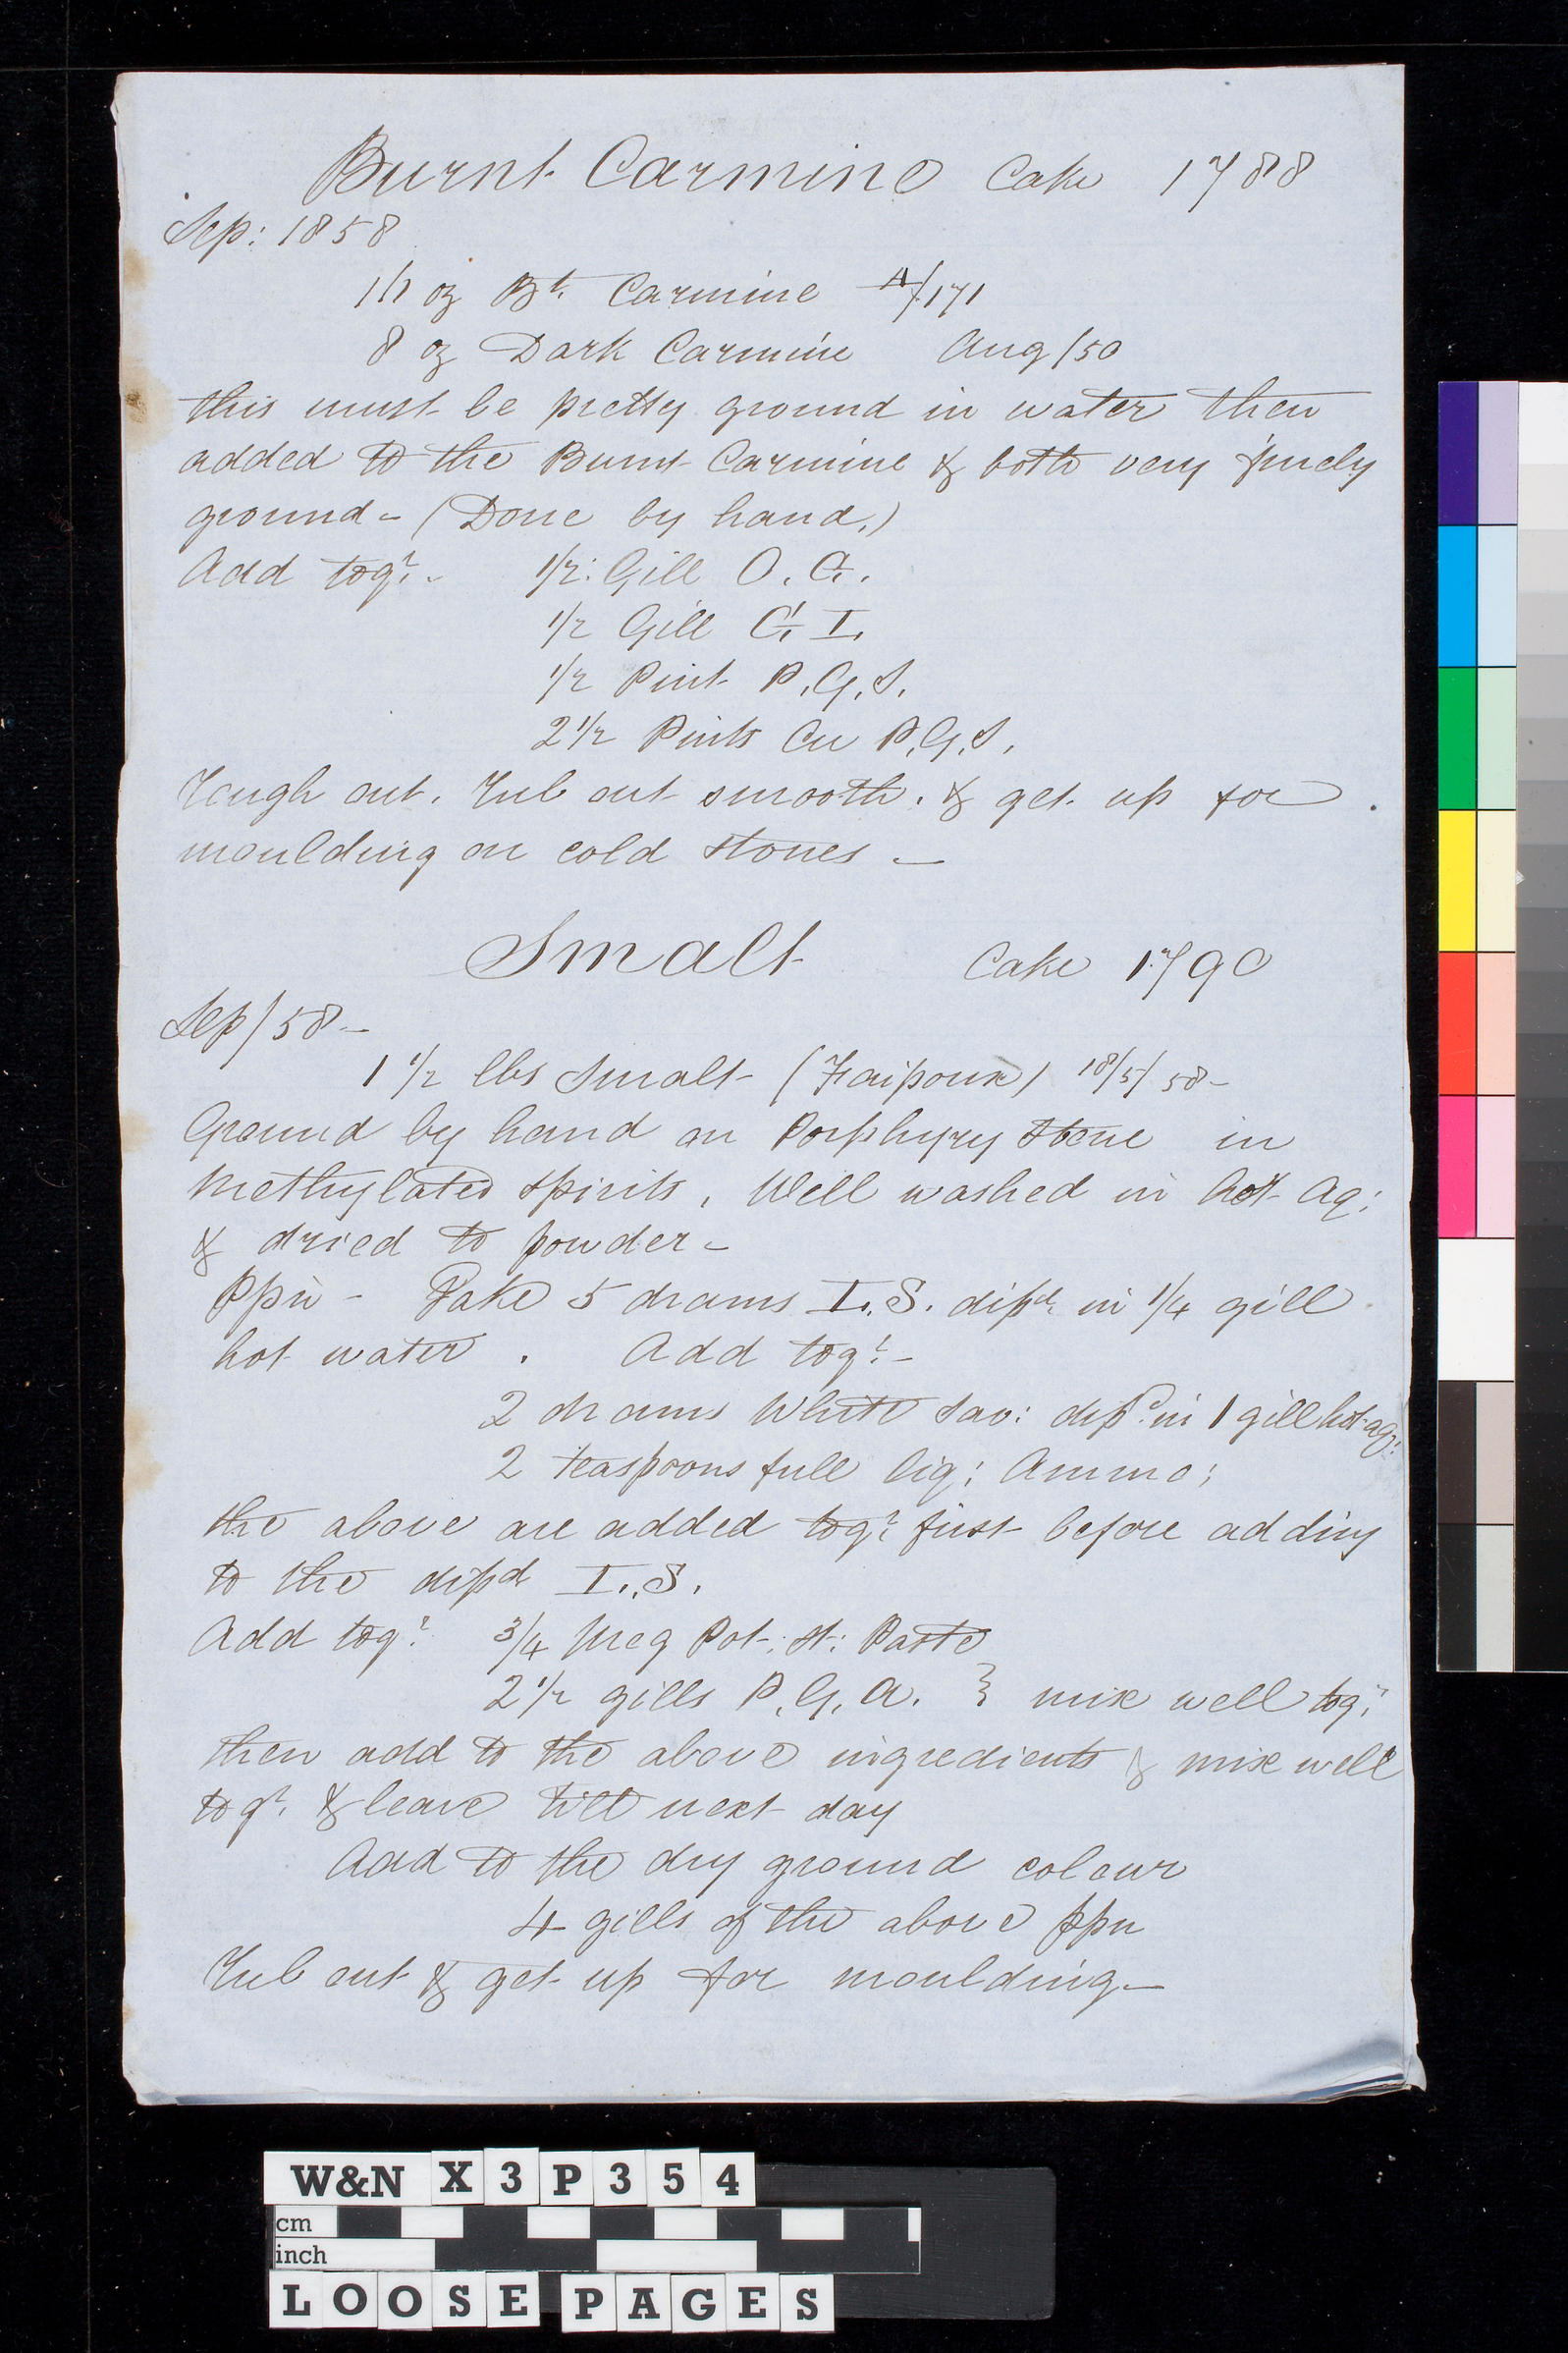 Burnt Carmine Cake 1788
Sep: 1858
oz Bt. Carmine /171
8 oz Dark Carmine Aug/50
this must be pretty ground in water then
added to the Burnt Carmine & both very finely
ground - (Done by hand.)
Add togr. - 1/2 Gill O. G.
1/2 Gill G. I.
1/2 Pint P. G. S.
2 1/2 Pints Cu P. G. S.
Rough out. Rub out smooth. & get up for
moulding on cold stones -
Smalt Cake 1790
Sep/58 -
1 1/2 lbs Smalt - 18/5/58 -
Ground by hand on Porphyry Stone in
Methylated spirits, Well washed in hot Aq:
& dried to powder -
Ppn - Take 5 drams I. S. dispd. in 1/4 gill
hot water. Add togr. -
2 drams White Sav: dispd. in 1 gill hot aq:
2 teaspoons full liq: Ammo:
the above are added togr. first before adding
to the dispd I. S.
Add togr. 3/4 Meg Pot: St: Paste
2 1/2 gills P. G. A. } mix well togr.
then add to the above ingredients & mix well
togr. & leave till next day
Add to the dry ground colour
4 gills of the above ppn
Rub out & get up for moulding -
W&N X3P354
cm
inch
LOOSE PAGES